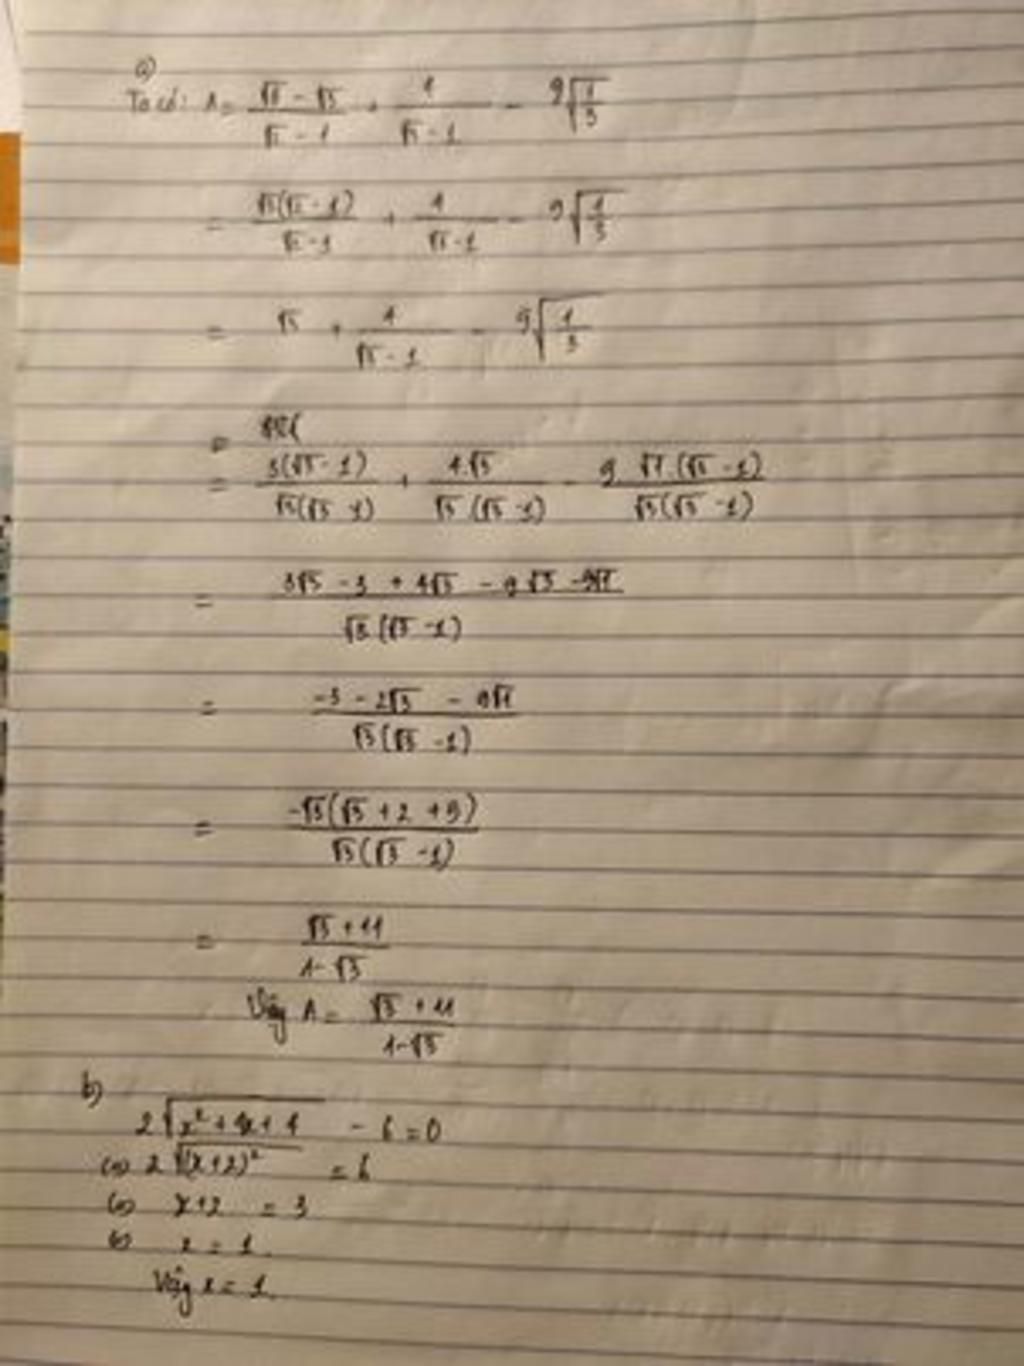 a)
Ta có: A = (√6 - √3)/(√2 - 1) + 4/(√3 - 1) - 9√(1/3)
= √3(√2 - 1)/(√2 - 1) + 4/(√3 - 1) - 9√(1/3)
= √3 + 4/(√3 - 1) - 9√(1/3)
=
= 3(√3 - 1)/(√3(√3 - 1)) + 4.√3/(√3(√3 - 1)) - 9√1.(√3 - 1)/(√3(√3 - 1))
= (3√3 - 3 + 4√3 - 9√3 - 9√1)/(√3(√3 - 1))
= (-3 - 2√3 - 9√1)/(√3(√3 - 1))
= -√3(√3 + 2 + 9)/(√3(√3 - 1))
= (√3 + 11)/(1 - √3)
Vậy A = (√3 + 11)/(1 - √3)
b)
2√(x² + 4x + 4) - 6 = 0
(=) 2√((x+2)²) = 6
(=) x+2 = 3
(=) x = 1.
Vậy x = 1.